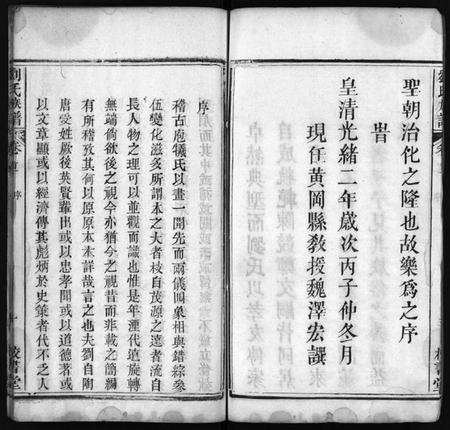 聖朝治化之隆也故樂爲之序
旹
皇清光緒二年歲次丙子仲冬月
現任黄岡縣教授魏澤宏譔
校書堂
序
稽古庖犧氏以畫一開先而兩儀四象相與錯綜叅
伍變化滋多所謂木之大者枝自茂源之遠者流自
長人物之理可以並觀而識也惟是年湮代遠旋轉
無端倘欲後之視今亦猶今之視昔而非載之簡編
有所稽攷其何以原原本本詳哉言之也夫劉自陶
唐受姓厥後英賢輩出或以忠孝聞或以道德著或
以文章顯或以經濟傳其彪炳於史策者代不乏人
劉氏族譜
卷首
序
一
校書堂